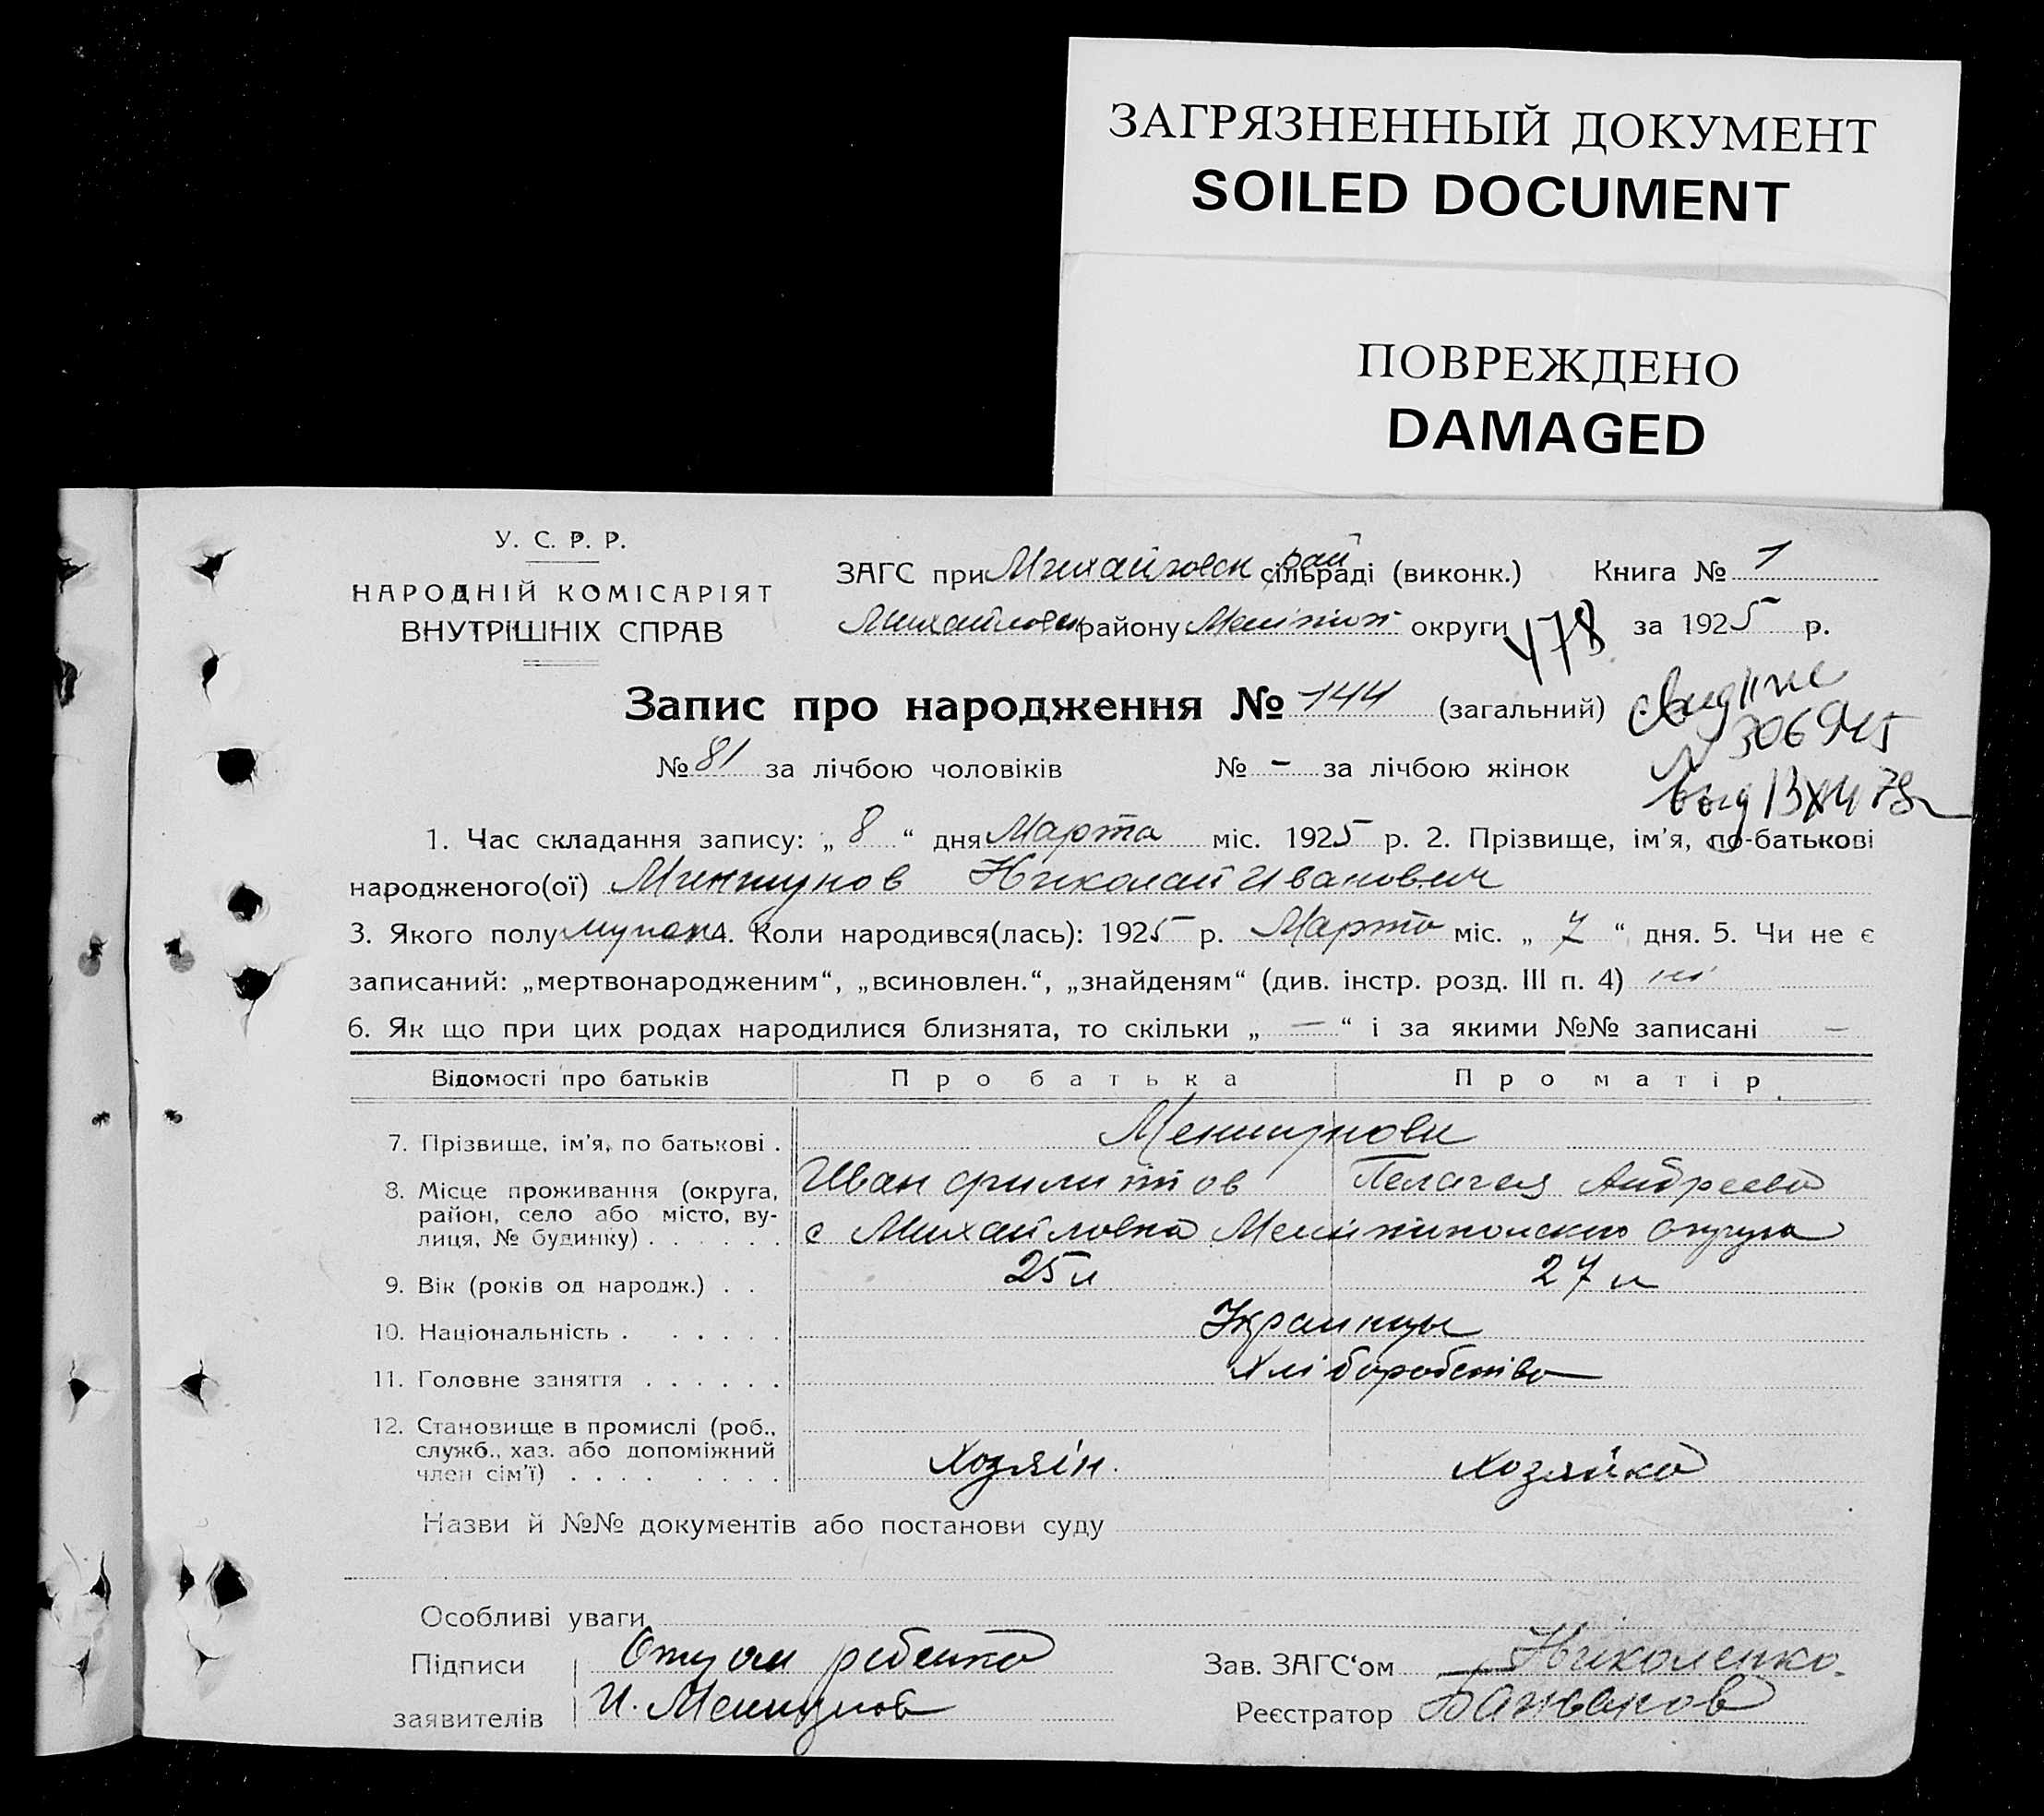 ЗАГРЯЗНЕННЫЙ ДОКУМЕНТ
SOILED DOCUMENT
ПОВРЕЖДЕНО
DAMAGED
У. С. Р. Р.
НАРОДНІЙ КОМІСАРІЯТ
ВНУТРІШНІХ СПРАВ
ЗАГС при Михайловск рай сільраді (виконк.) Книга № 1
Михайловск району Меліtoп округи 478 за 1925 р.
Запис про народження № 144 (загальний)
№ 306915
№ 81 за лічбою чоловіків № – за лічбою жінок
1. Час складання запису: „ 8 “ дня Марта міс. 1925 р. 2. Прізвище, ім'я, по-батькові
народженого(ої) Николай Иванович
3. Якого полу 4. Коли народився(лась): 1925 р. Марта міс. „ 7 “ дня. 5. Чи не є
записаний: „мертвонародженим“, „всиновлен.“, „знайденям“ (див. інстр. розд. III п. 4) ні
6. Як що при цих родах народилися близнята, то скільки „ — “ і за якими №№ записані —
Відомості про батьків Про батька Про матір
7. Прізвище, ім'я, по батькові . Меншунови
Иван Филиппов Пелагея Андреева
8. Місце проживання (округа, район, село або місто, ву-
лиця, № будинку) . . . . . . с Михайловка Мелітопольского округа
9. Вік (років од народж.) . . 25 л 27 л
10. Національність . . . . . . Украинцы
11. Головне заняття . . . . . . Хліборобство
12. Становище в промислі (роб.,
служб., хаз. або допоміжний
член сім'ї) . . . . . . . . Хозяін. Хозяйка
Назви й №№ документів або постанови суду
Особливі уваги
Підписи Отцом ребенка Зав. ЗАГС‘ом Николенко.
заявителів И. Меншунов Реєстратор Бажанов